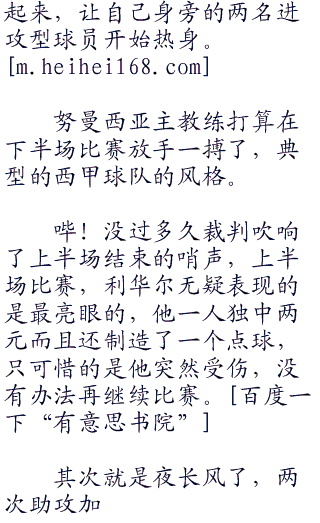 起来，让自己身旁的两名进
攻型球员开始热身。
[m.heihei168.com]
努曼西亚主教练打算在
下半场比赛放手一搏了，典
型的西甲球队的风格。
哔！没过多久裁判吹响
了上半场结束的哨声，上半
场比赛，利华尔无疑表现的
是最亮眼的，他一人独中两
元而且还制造了一个点球，
只可惜的是他突然受伤，没
有办法再继续比赛。[百度一
下“有意思书院”]
其次就是夜长风了，两
次助攻加